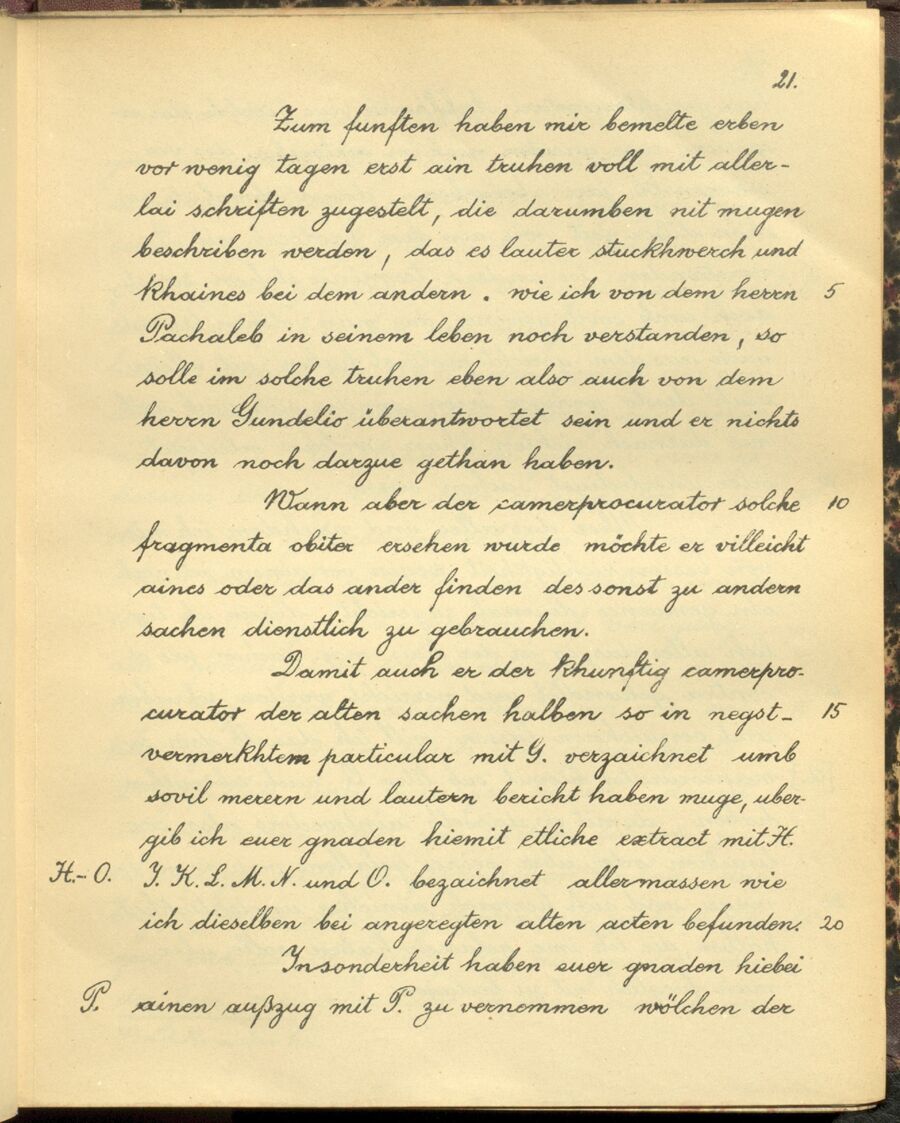 21.
Zum funften haben mir bemelte erben
vor wenig tagen erst ain truhen voll mit aller-
lai schriften zugestelt, die darumben nit mugen
beschriben werden, das es lauter stuckhwerch und
khaines bei dem andern. wie ich von dem herrn 5
Pachaleb in seinem leben noch verstanden, so
solle im solche truhen eben also auch von dem
herrn Gundelio überantwortet sein und er nichts
davon noch darzue gethan haben.
Wann aber der camerprocurator solche 10
fragmenta obiter ersehen wurde möchte er villeicht
aines oder das ander finden des sonst zu andern
sachen dienstlich zu gebrauchen.
Damit auch er der khunftig camerpro-
curator der alten sachen halben so in negst- 15
vermerkhtem particular mit G. verzaichnet umb
sovil merern und lautern bericht haben muge, uber-
gib ich euer gnaden hiemit etliche extract mit H.
H.-O. J. K. L. M. N. und O. bezaichnet allermassen wie
ich dieselben bei angeregten alten acten befunden. 20
Insonderheit haben euer gnaden hiebei
P. ainen außzug mit P. zu vernemmen wölchen der